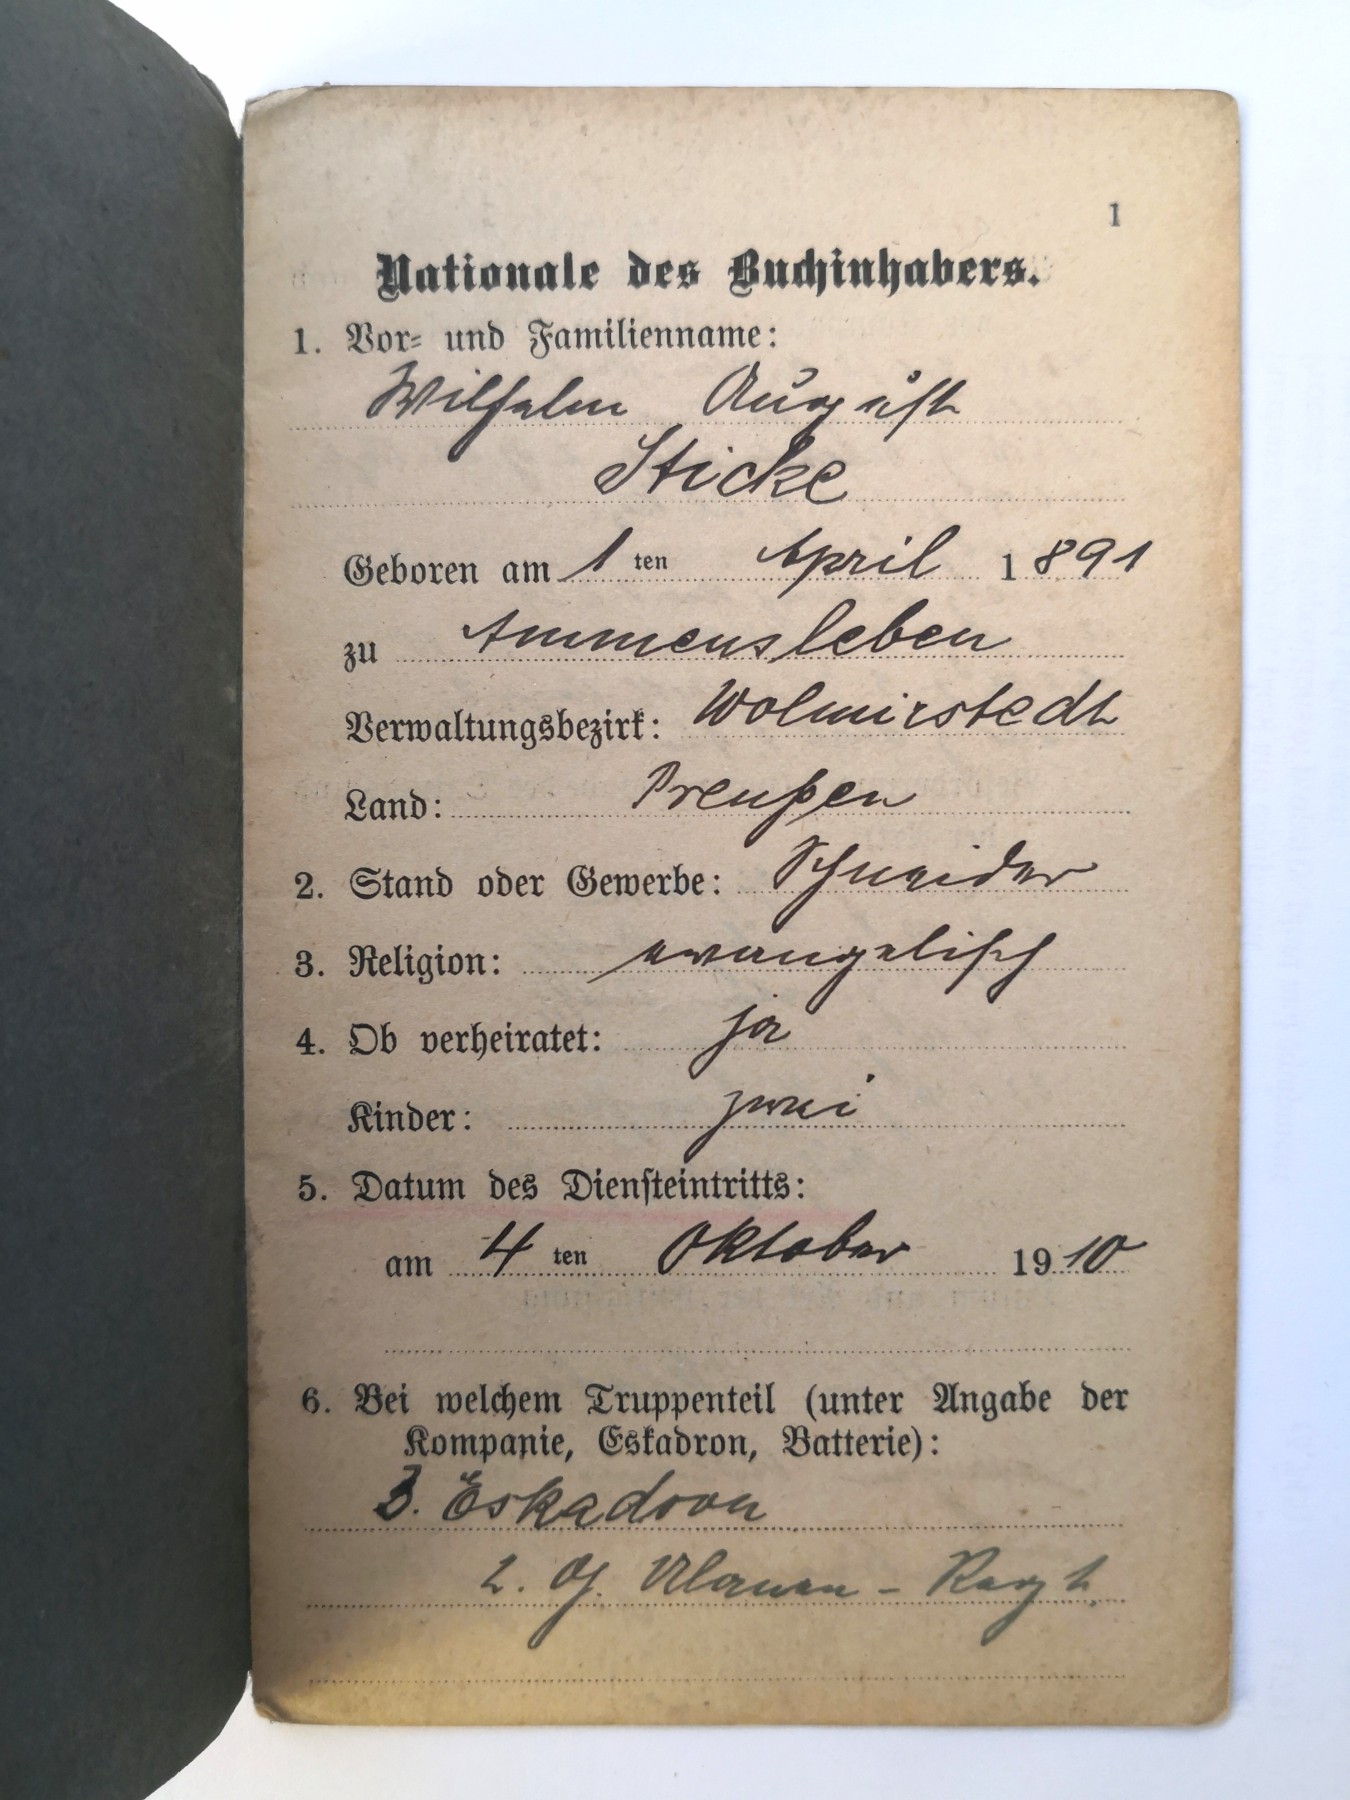 1
Nationale des Buchinhabers.
1. Vor- und Familienname:
Wilhelm August
Sticke
Geboren am 1 ten April 1891
zu Ammensleben
Verwaltungsbezirk: Wolmirstedt
Land: Preußen
2. Stand oder Gewerbe: Schneider
3. Religion: evangelisch
4. Ob verheiratet: ja
Kinder: zwei
5. Datum des Diensteintritts:
am 4 ten Oktober 1910
6. Bei welchem Truppenteil (unter Angabe der
Kompanie, Eskadron, Batterie):
3. Eskadron
2. G. Ulanen-Regt.